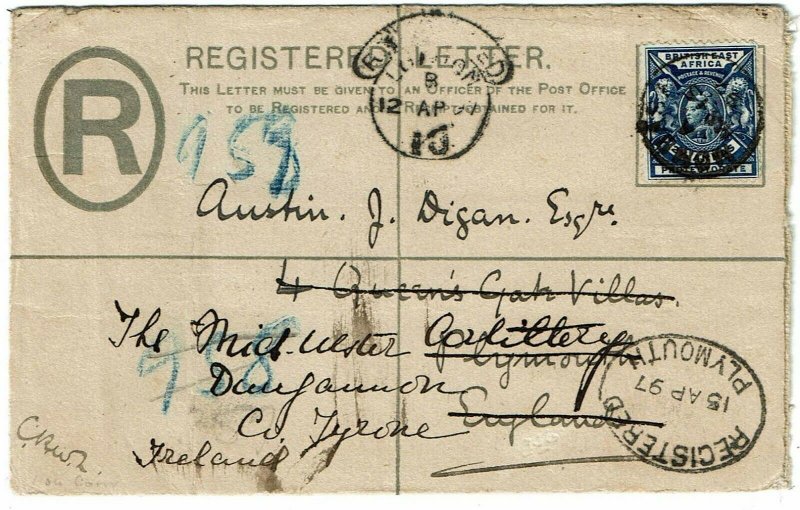 REGISTERED LETTER.
THIS LETTER MUST BE GIVEN TO AN OFFICER OF THE POST OFFICE
TO BE REGISTERED AND A RECEIPT OBTAINED FOR IT.
R
REGISTERED
LONDON
B
12 AP 97
BRITISH EAST
AFRICA
POSTAGE & REVENUE
958
Austin. J. Digan. Esqre.
4 Queen's Gate Villas.
Plymouth
England
The Mid-Ulster Artillery
Dungannon
Co Tyrone
Ireland
958
REGISTERED
15 AP 97
PLYMOUTH